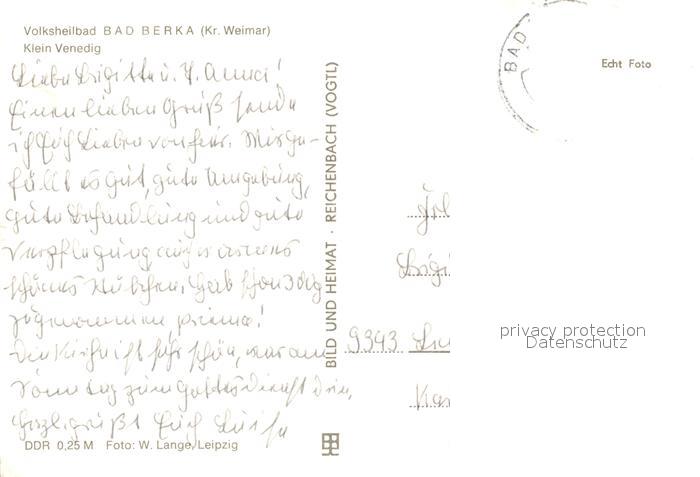 Volksheilbad BAD BERKA (Kr. Weimar)
Klein Venedig
Liebe Brigitte u. F. Anna!
Einen lieben Gruß sende
ich Euch Lieben von hier. Mir ge-
fällt es gut, gute Umgebung,
gute Behandlung und gute
Verpflegung, außerdem
schönes Stübchen. Hab schon 3 kg
zugenommen, prima!
Die Kirche ist sehr schön, war am
Sonntag zum Gottesdienst drin,
Herzl. grüßt Euch
DDR 0,25 M Foto: W. Lange, Leipzig
BILD UND HEIMAT · REICHENBACH (VOGTL)
BAD
Echt Foto
Brigi
9343
privacy protection
Datenschutz